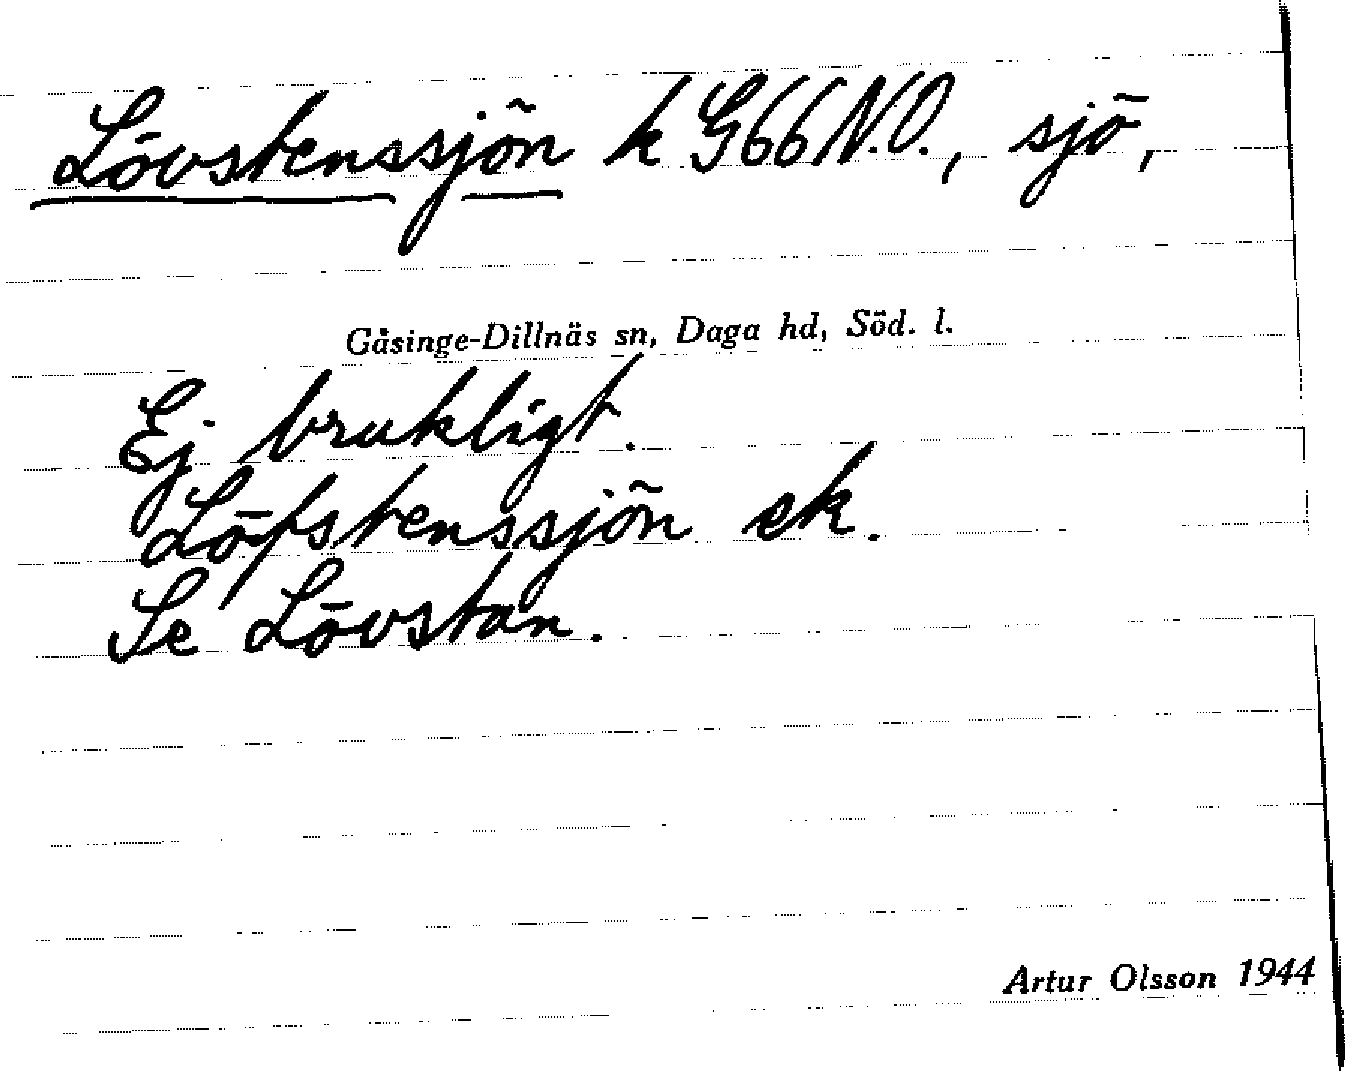 Lövstenssjön k G66N.O., sjö,
Gåsinge-Dillnäs sn, Daga hd, Söd. l.
Ej brukligt.
Löfstenssjön ek.
Se Lövstan.
Artur Olsson 1944